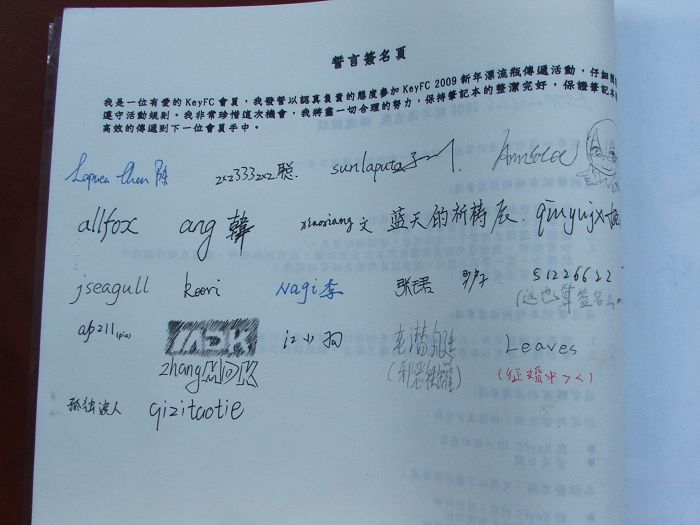 誓言簽名頁
我是一位有愛的KeyFC會員，我發誓以認真負責的態度參加KeyFC 2009新年漂流瓶傳遞活動，仔細閱
遵守活動規則。我非常珍惜這次機會，我將盡一切合理的努力，保持筆記本的整潔完好，保證筆記本
高效的傳遞到下一位會員手中。
Chen 陈 2x23332x2.聪 sunlaputa
allfox ang 韓 xiaoxiang 文 蓝天的祈祷 辰.
jseagull koori Nagi李 张珺 51226622
(这也算签名么
ap211(pia) MDK 江小狗 老潜艇 Leaves
zhang MDK (征婚中><)
孤独浪人 qizitaotie